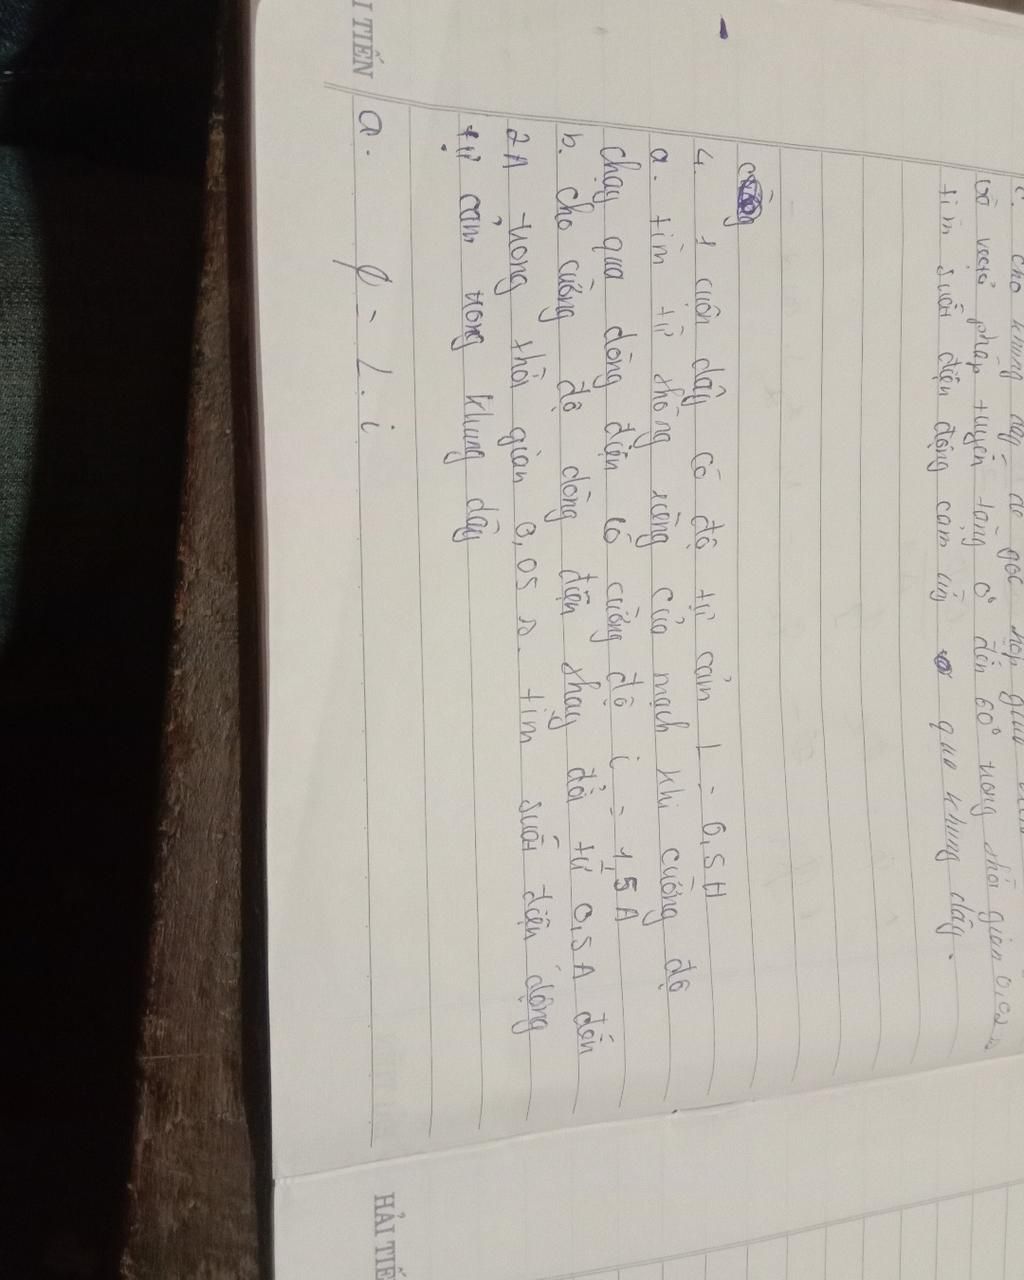 c. cho khung dây ... góc hợp giữa
và vectơ pháp tuyến tăng 0° đến 60° trong thời gian 0,02 s
tìm suất điện động cảm ứng qua khung dây.
4. 1 cuộn dây có độ tự cảm L = 0,5H
a. tìm từ thông riêng của mạch khi cường độ
chạy qua dòng điện có cường độ i = 1,5A
b. cho cường độ dòng điện thay đổi từ 0,5A đến
2A trong thời gian 0,05 s. tìm suất điện động
tự cảm trong khung dây
a. Ø = L.i
I TIẾN
HẢI TIẾ